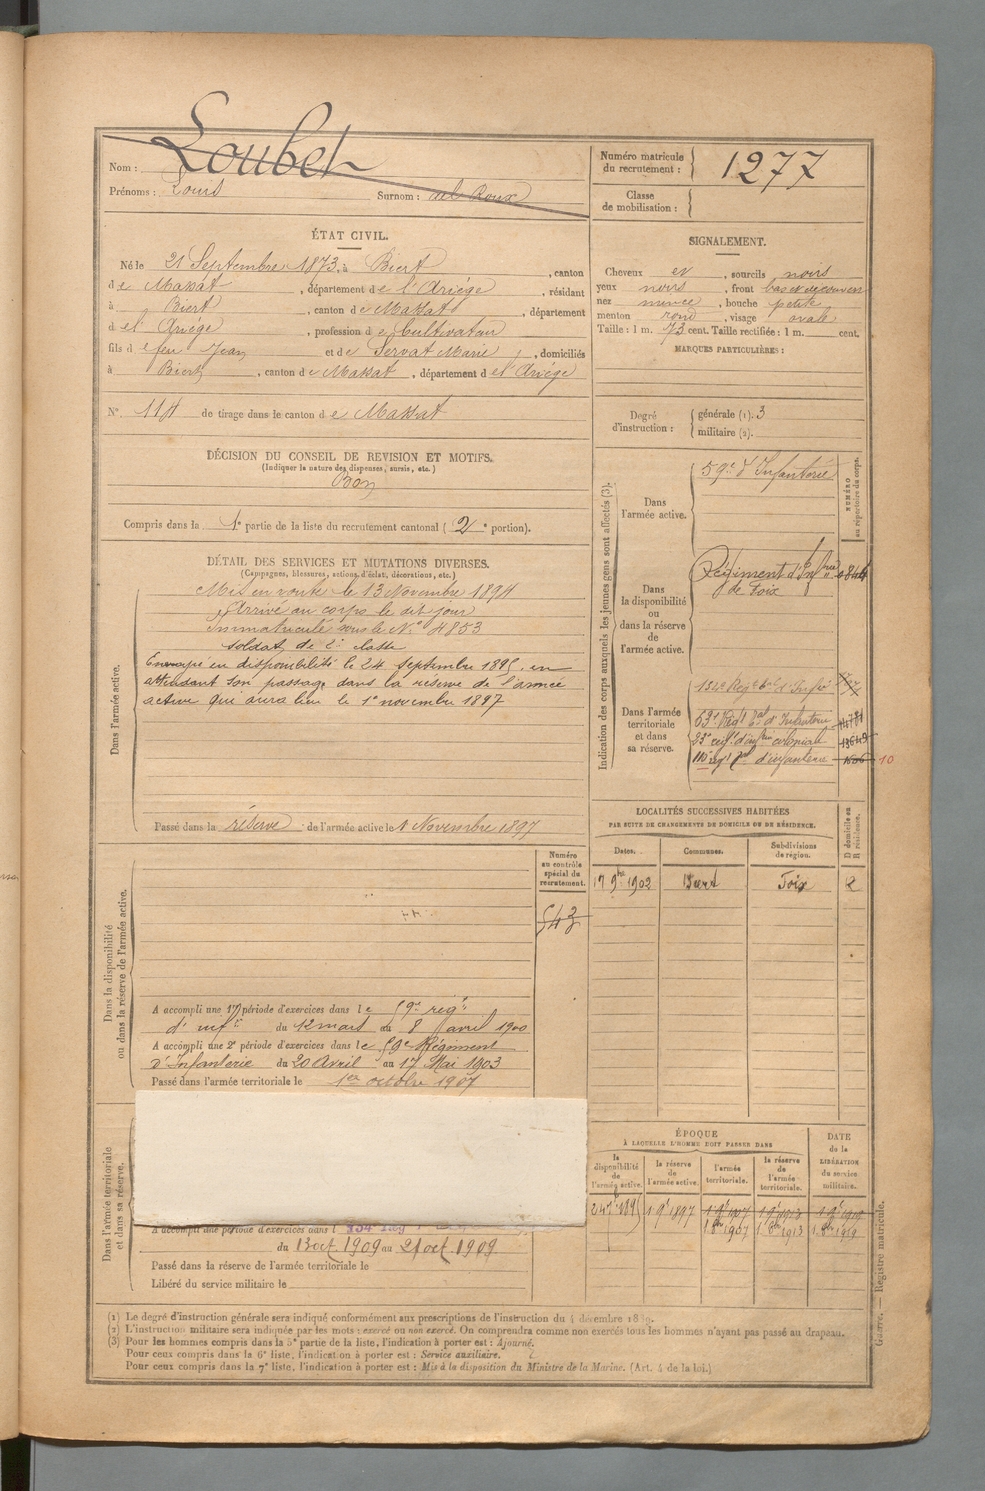 Nom : Loubet
Prénoms : Louis Surnom : del Roux
Numéro matricule du recrutement : 1277
Classe de mobilisation :
ÉTAT CIVIL.
Né le 21 Septembre 1873, à Biert, canton
de Massat, département de l'Ariége, résidant
à Biert, canton de Massat, département
d el Ariége, profession de Cultivateur
fils d e feu Jean et de Servat Marie, domiciliés
à Biert, canton de Massat, département d el Ariége
N° 114 de tirage dans le canton de Massat
SIGNALEMENT.
Cheveux et, sourcils noirs
yeux noirs, front bas et découvert
nez mince, bouche petite
menton rond, visage ovale
Taille : 1 m. 73 cent. Taille rectifiée : 1 m. cent.
MARQUES PARTICULIÈRES :
Degré d'instruction : générale (1). 3
militaire (2).
DÉCISION DU CONSEIL DE REVISION ET MOTIFS.
(Indiquer la nature des dispenses, sursis, etc.)
Bon
Compris dans la 1e partie de la liste du recrutement cantonal (2e portion).
DÉTAIL DES SERVICES ET MUTATIONS DIVERSES.
(Campagnes, blessures, actions d'éclat, décorations, etc.)
Dans l'armée active.
Mis en route le 13 Novembre 1894
Arrivé au corps le dit jour
Immatriculé sous le N° 4853
soldat de 2e classe
Envoyé en disponibilité le 24 septembre 1895, en
attendant son passage dans la réserve de l'armée
active qui aura lieu le 1er novembre 1897
Passé dans la réserve de l'armée active le 1 Novembre 1897
Indication des corps auxquels les jeunes gens sont affectés (3).
NUMÉRO au répertoire du corps.
Dans l'armée active. 59e d'Infanterie
Dans la disponibilité ou dans la réserve de l'armée active.
Régiment d'Infrie
de Foix
Dans l'armée territoriale et dans sa réserve.
134e Régt tal d'Infie
63e Régt tal d'Infanterie
23e régt d'inftrie coloniale 13643
115e régt tal d'infanterie
10
LOCALITÉS SUCCESSIVES HABITÉES
PAR SUITE DE CHANGEMENTS DE DOMICILE OU DE RÉSIDENCE.
Dates. Communes. Subdivisions de région. D domicile ou R résidence.
17 9bre 1902 Biert Foix R
Dans la disponibilité ou dans la réserve de l'armée active.
Numéro au contrôle spécial du recrutement.
543
A accompli une 1re période d'exercices dans le 59e régt
d'inftie du 12 mars au 8 avril 1900
A accompli une 2e période d'exercices dans le 59e Régiment
d'Infanterie du 20 Avril au 17 Mai 1903
Passé dans l'armée territoriale le 1er octobre 1907
Dans l'armée territoriale et dans sa réserve.
A accompli une période d'exercices dans l 134 Rég
du 13 oct. 1909 au 21 oct. 1909
Passé dans la réserve de l'armée territoriale le
Libéré du service militaire le
ÉPOQUE
À LAQUELLE L'HOMME DOIT PASSER DANS
la disponibilité de l'armée active. la réserve de l'armée active. l'armée territoriale. la réserve de l'armée territoriale. DATE de la LIBÉRATION du service militaire.
24 7bre 1895 1 9bre 1897 1 9bre 1907 1 9bre 1913 1 9bre 1919
1 8bre 1907 1 8bre 1913 1 8bre 1919
Guerre. — Registre matricule.
(1) Le degré d'instruction générale sera indiqué conformément aux prescriptions de l'instruction du 4 décembre 1889.
(2) L'instruction militaire sera indiquée par les mots : exercé ou non exercé. On comprendra comme non exercés tous les hommes n'ayant pas passé au drapeau.
(3) Pour les hommes compris dans la 5e partie de la liste, l'indication à porter est : Ajourné.
Pour ceux compris dans la 6e liste, l'indication à porter est : Service auxiliaire.
Pour ceux compris dans la 7e liste, l'indication à porter est : Mis à la disposition du Ministre de la Marine. (Art. 4 de la loi.)